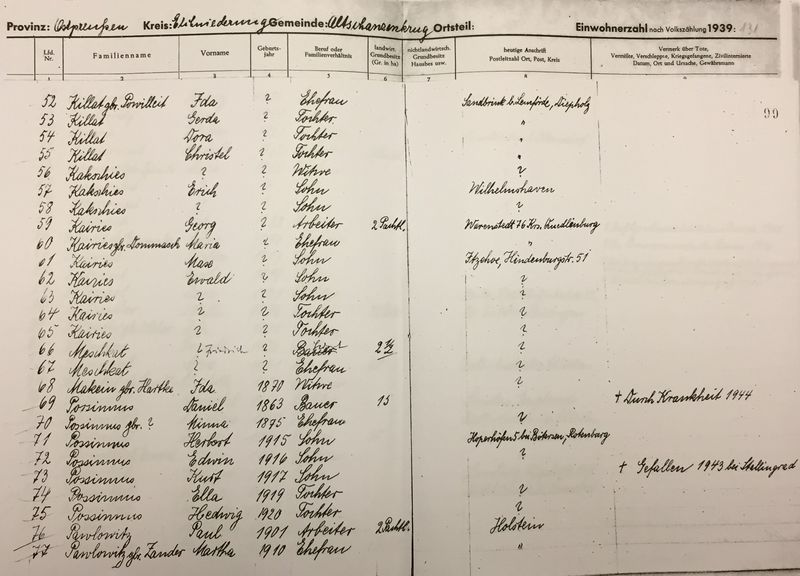 Provinz: Ostpreußen Kreis: Elchniederung Gemeinde: Altschanzenkrug Ortsteil: Einwohnerzahl nach Volkszählung 1939: 131
Lfd. Nr. Familienname Vorname Geburts-jahr Beruf oder Familienverhältnis landwirt. Grundbesitz (Gr. in ha) nichtlandwirtsch. Grundbesitz Hausbes usw. heutige Anschrift Postleitzahl Ort, Post, Kreis Vermerk über Tote, Vermißte, Verschleppte, Kriegsgefangene, Zivilinternierte Datum, Ort und Ursache, Gewährsmann
1 2 3 4 5 6 7 8 9
99
52 Killat gbr. Powilleit Ida ? Ehefrau Sandbrink b. Lemförde, Diepholz
53 Killat Gerda ? Tochter "
54 Killat Dora ? Tochter "
55 Killat Christel ? Tochter "
56 Kakschies ? ? Witwe ?
57 Kakschies Erich ? Sohn Wilhelmshaven
58 Kakschies ? ? Sohn ?
59 Kairies Georg ? Arbeiter 2 Pachtl. 76 Krs.
60 Kairies gbr. Dommasch Maria ? Ehefrau "
61 Kairies Max ? Sohn Itzehoe, Hindenburgstr. 51
62 Kairies Ewald ? Sohn ?
63 Kairies ? ? Sohn ?
64 Kairies ? ? Tochter ?
65 Kairies ? ? Tochter ?
66 Meschkat ? Friedrich ? Bauer ?
67 Meschkat ? ? Ehefrau ?
68 Makein gbr. Hartke Ida 1870 Witwe ?
69 Possinnus Daniel 1863 Bauer 15 † Durch Krankheit 1944
70 Possinnus gbr. ? Minna 1875 Ehefrau ?
71 Possinnus Herbert 1915 Sohn Hoperhöfen 5 bei Bötersen, Rotenburg
72 Possinnus Edwin 1916 Sohn ?
73 Possinnus Kurt 1917 Sohn † Gefallen 1943 bei Stalingrad
74 Possinnus Ella 1919 Tochter ?
75 Possinnus Hedwig 1920 Tochter ?
76 Pawlowitz Paul 1901 Arbeiter 2 Pachtl. Holstein
77 Pawlowitz gbr. Zander Martha 1910 Ehefrau "